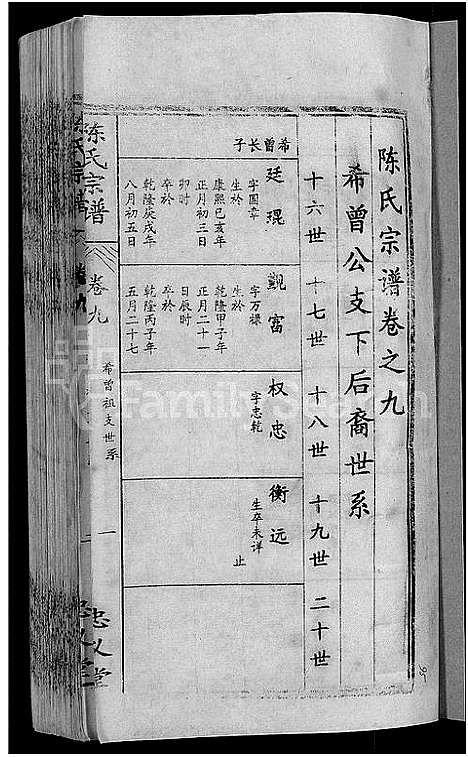 陈氏宗谱卷之九
希曾公支下后裔世系
十六世 十七世 十八世 十九世 二十世
希曾长子
廷琨
字国章
生於
康熙己亥年
正月初三日
卯时
卒於
乾隆庚戌年
八月初五日
觐富
字万樑
生於
乾隆甲子年
正月二十一
日辰时
卒於
乾隆丙子年
五月二十七
权忠
字忠乾
衡远
生卒未详
止
陈氏宗谱
卷九
希曾祖支世系
一
忠义堂
FamilySearch